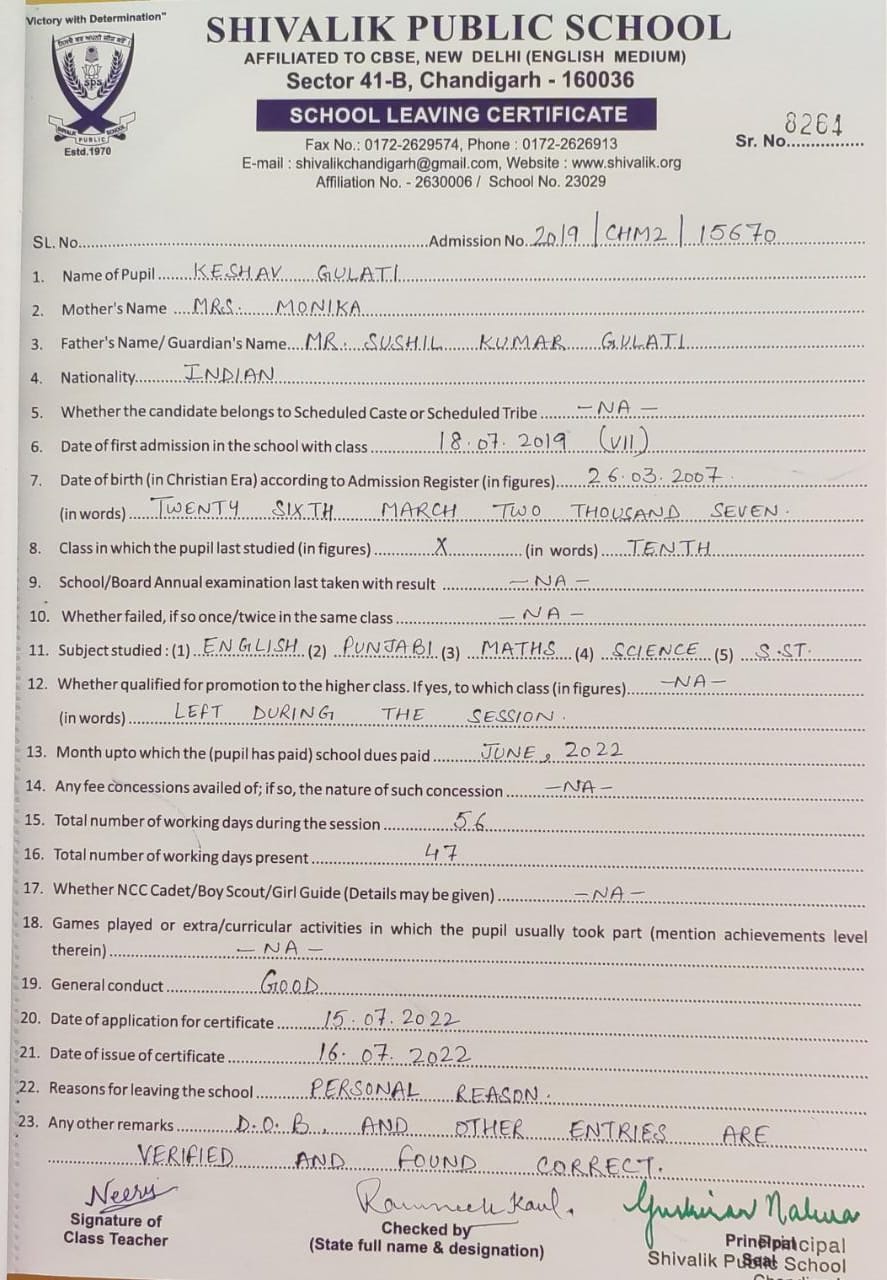 Victory with Determination"
SHIVALIK PUBLIC SCHOOL
AFFILIATED TO CBSE, NEW DELHI (ENGLISH MEDIUM)
Sector 41-B, Chandigarh - 160036
SCHOOL LEAVING CERTIFICATE
sps
SHIVALIK PUBLIC SCHOOL
Estd.1970
Fax No.: 0172-2629574, Phone : 0172-2626913
E-mail : shivalikchandigarh@gmail.com, Website : www.shivalik.org
Affiliation No. - 2630006 / School No. 23029
Sr. No. 8261
SL. No. Admission No. 2019/CHM2/15670
1. Name of Pupil KESHAV GULATI
2. Mother's Name MRS. MONIKA
3. Father's Name/ Guardian's Name MR. SUSHIL KUMAR GULATI
4. Nationality INDIAN
5. Whether the candidate belongs to Scheduled Caste or Scheduled Tribe - NA -
6. Date of first admission in the school with class 18.07.2019 (VII)
7. Date of birth (in Christian Era) according to Admission Register (in figures) 26.03.2007.
(in words) TWENTY SIXTH MARCH TWO THOUSAND SEVEN.
8. Class in which the pupil last studied (in figures) X (in words) TENTH
9. School/Board Annual examination last taken with result - NA -
10. Whether failed, if so once/twice in the same class - NA -
11. Subject studied : (1) ENGLISH (2) PUNJABI (3) MATHS (4) SCIENCE (5) S.ST.
12. Whether qualified for promotion to the higher class. If yes, to which class (in figures) -NA-
(in words) LEFT DURING THE SESSION.
13. Month upto which the (pupil has paid) school dues paid JUNE, 2022
14. Any fee concessions availed of; if so, the nature of such concession -NA-
15. Total number of working days during the session 56
16. Total number of working days present 47
17. Whether NCC Cadet/Boy Scout/Girl Guide (Details may be given) -NA-
18. Games played or extra/curricular activities in which the pupil usually took part (mention achievements level
therein) - NA -
19. General conduct GOOD
20. Date of application for certificate 15.07.2022
21. Date of issue of certificate 16.07.2022
22. Reasons for leaving the school PERSONAL REASON.
23. Any other remarks D.O.B, AND OTHER ENTRIES ARE
VERIFIED AND FOUND CORRECT.
Signature of
Class Teacher
Checked by
(State full name & designation)
Principal
Seal
Principal
Shivalik Public School